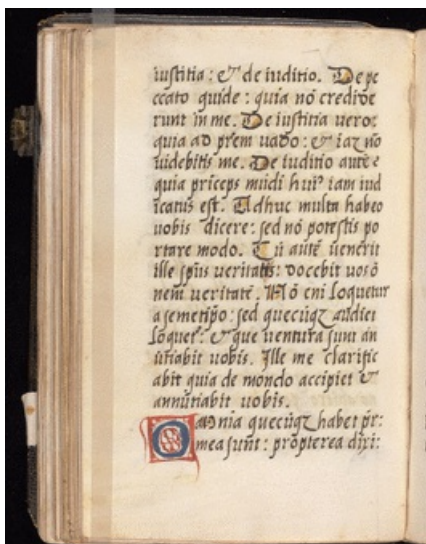 iustitia : & de iuditio. De pe
ccato quidē : quia nō credide
runt in me. De iustitia vero:
quia ad prēm uado : & iaz nō
uidebitis me. De iuditio autē ē
quia prīceps mūdi huiꝰ iam iud
icatus est. Adhuc multa habeo
uobis dicere: sed nō potestis po
rtare modo. Cū autē uenerit
ille spūs veritatis: docebit uos ō
nem veritatē. Nō eni loquetur
a semetipō: sed quecūqꝫ audiet
loquet: & que ventura sunt an
ūtiabit uobis. Ille me clarific
abit quia de mondo accipiet &
annūtiabit uobis.
Omnia quecūqꝫ habet pr̄:
mea sunt: prōpterea dixi: